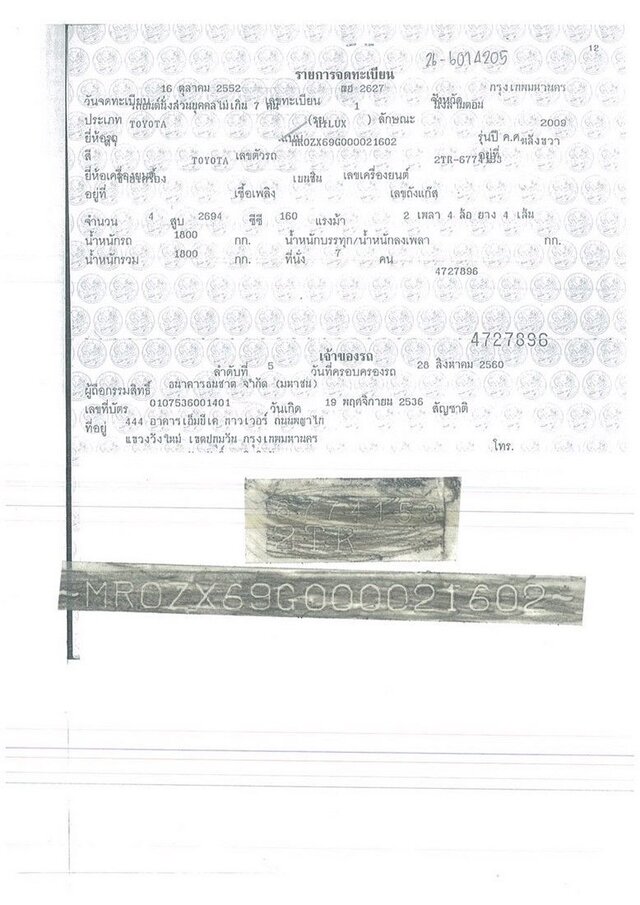 26-6014205
12
รายการจดทะเบียน
16 ตุลาคม 2552 2627 กรุงเทพมหานคร
วันจดทะเบียน เลขทะเบียน 1 จังหวัด
รถยนต์นั่งส่วนบุคคลไม่เกิน 7 คน
ประเภท TOYOTA HILUX ลักษณะ 2009
ยี่ห้อรถ MR0ZX69G000021602 รุ่นปี ค.ศ.
สี TOYOTA เลขตัวรถ 2TR- อยู่ที่
ยี่ห้อเครื่องยนต์ เบนซิน เลขเครื่องยนต์
อยู่ที่ เชื้อเพลิง เลขถังแก๊ส
จำนวน 4 สูบ 2694 ซีซี 160 แรงม้า 2 เพลา 4 ล้อ ยาง 4 เส้น
น้ำหนักรถ 1800 กก. น้ำหนักบรรทุก/น้ำหนักลงเพลา กก.
น้ำหนักรวม 1800 กก. ที่นั่ง 7 คน
4727896
4727896
เจ้าของรถ
ลำดับที่ 5 วันที่ครอบครองรถ 28 สิงหาคม 2560
ผู้ถือกรรมสิทธิ์ ธนาคารธนชาต จำกัด (มหาชน)
เลขที่บัตร 0107536001401 วันเกิด 19 พฤศจิกายน 2536 สัญชาติ
ที่อยู่ 444 อาคารเอ็มบีเค ทาวเวอร์ ถนนพญาไท
แขวงวังใหม่ เขตปทุมวัน กรุงเทพมหานคร โทร.
6774153
2TR
~MR0ZX69G000021602~